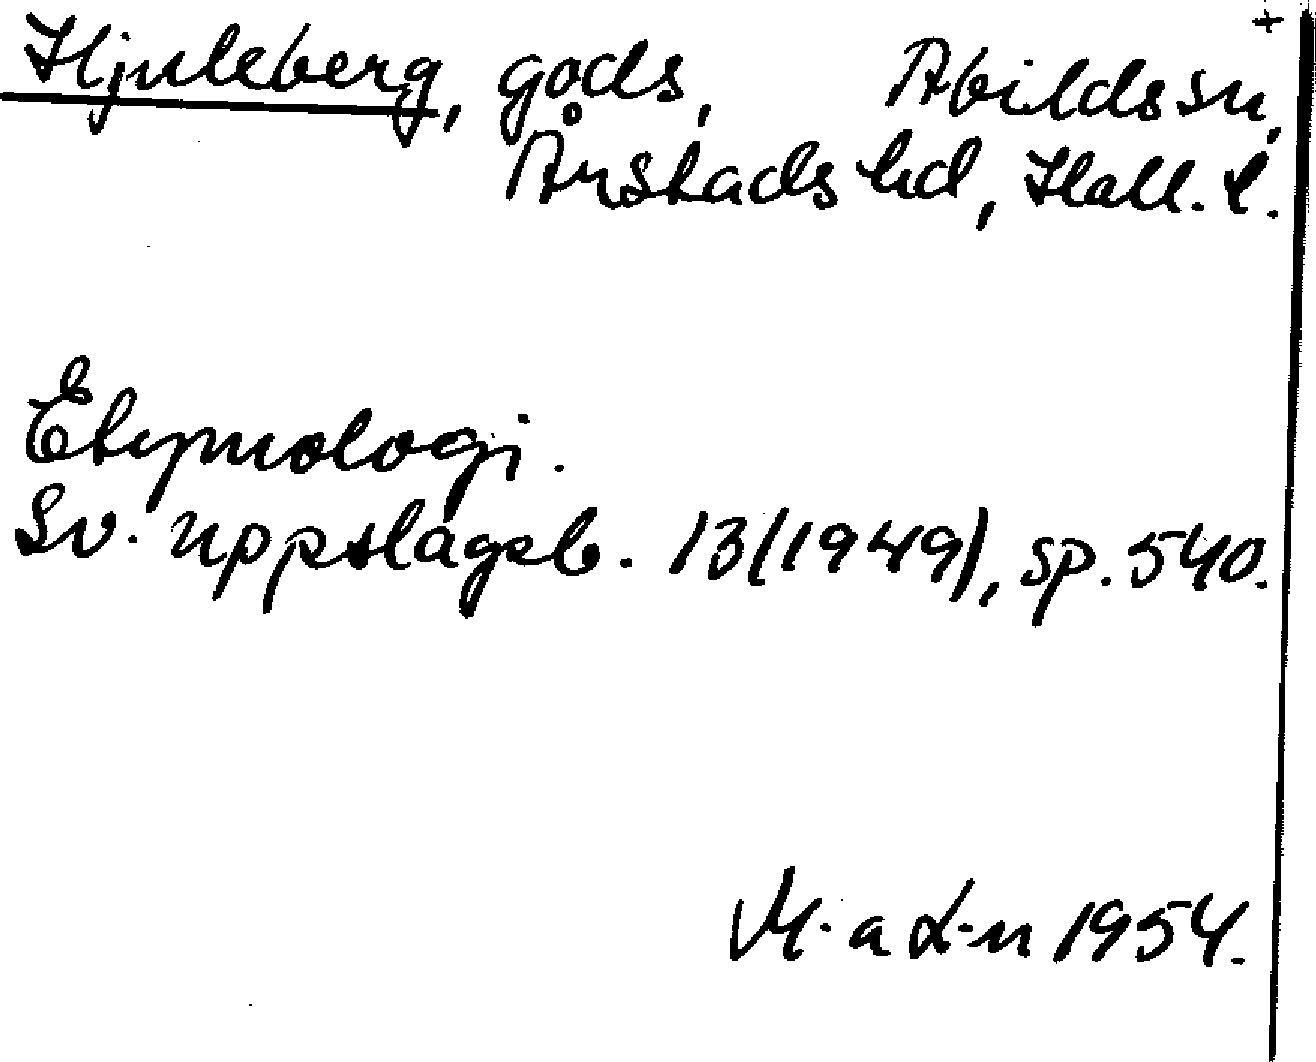 +
Hjuleberg, gods, Abilds sn,
Årstads hd, Hall. l.
Etymologi.
Sv. uppslagsb. 13 (1949), sp. 540.
1954.